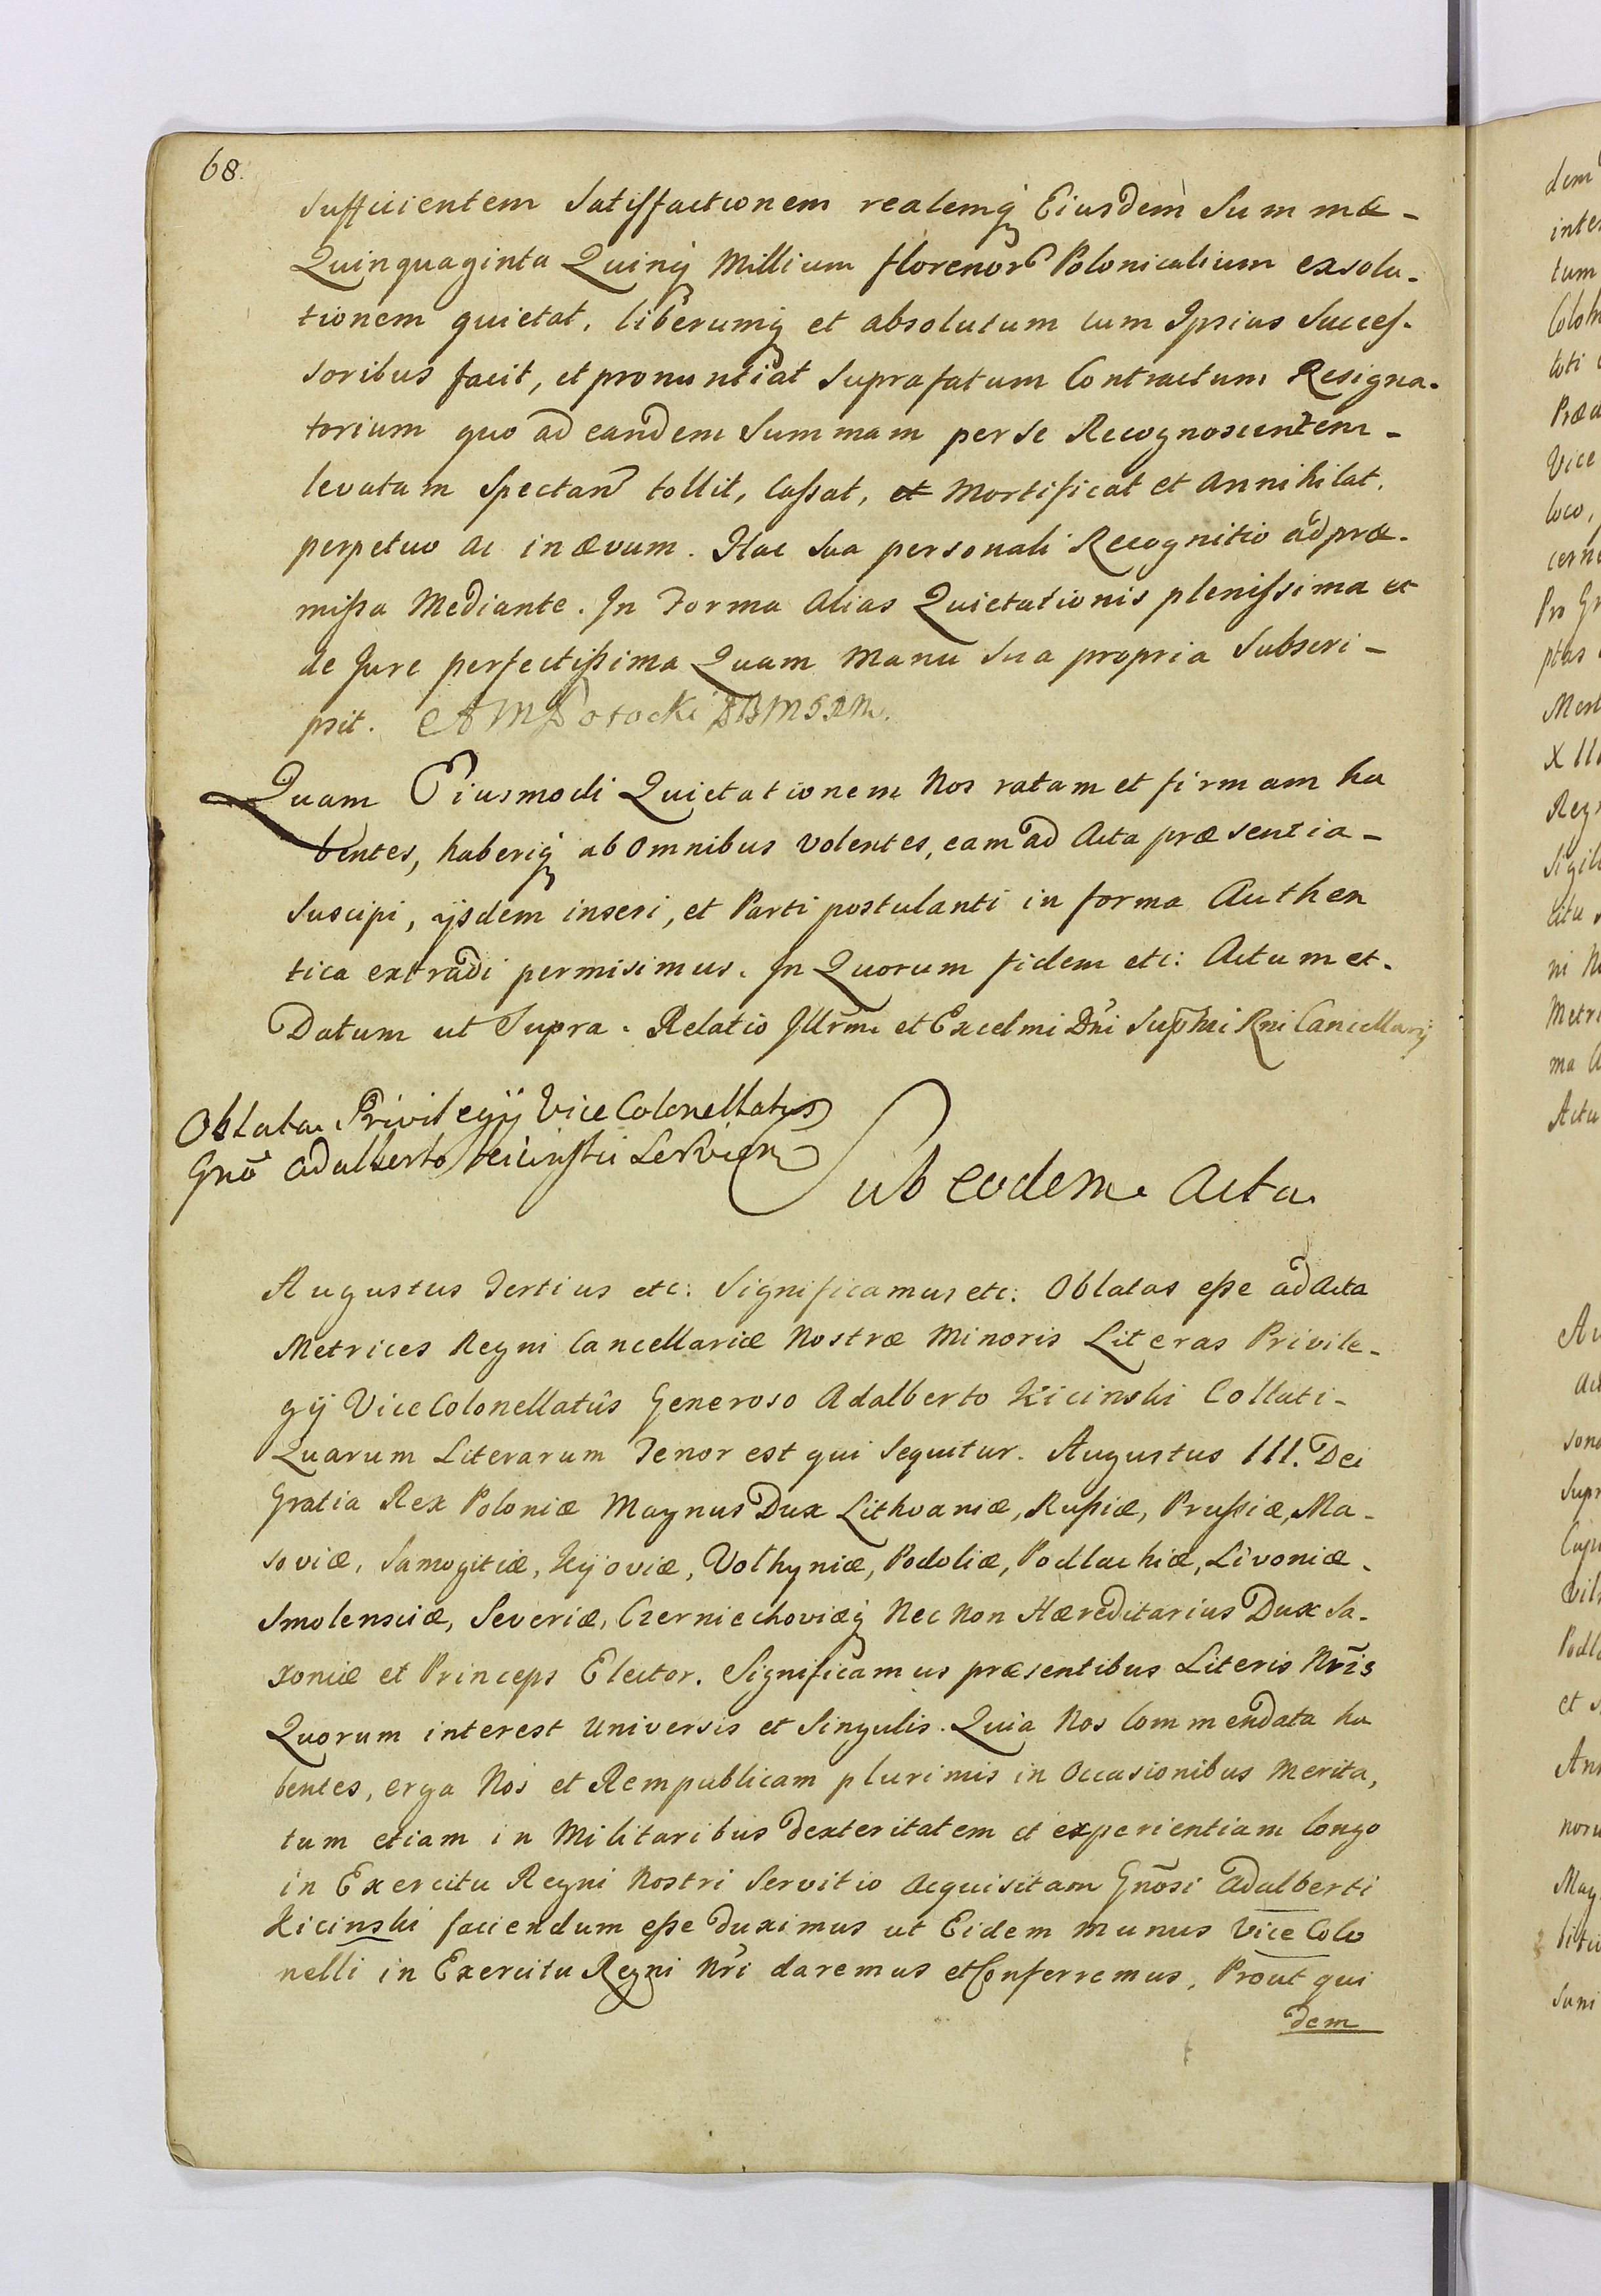 68.
sufficientem Satisfactionem realemq Eiusdem Summæ -
Quinquaginta Quinq Millium florenor Polonicalium exsolu-
tionem quietat, liberumq et absolutum cum Ipsius Succes-
soribus facit, et pronuntiat Suprafatum Contractum Resigna-
torium quo ad eandem Summam per se Recognoscentem -
levatam Spectan tollit, Cassat, et Mortificat et Annihilat.
perpetuo ac in ævum. Hac sua personali Recognitio ad præ-
missa Mediante. In Forma Alias Quietationis plenissima et
de Jure perfectissima Quam Manu Sua propria Subscri-
psit. AMPotocki
Quam Eiusmodi Quietationem Nos ratam et firmam ha
bentes, haberiq ab omnibus volentes, eam ad Acta præsentia -
Suscipi, ijsdem inseri, et Parti postulanti in forma Authen
tica extradi permisimus. In Quorum fidem etc: Actum et.
Datum ut Supra. Relatio Illrmi et Excelmi Dni Supmi Rni Cancellarij
Oblata Privilegij Vice Colonellatus
Gno Adalberto Kicinski Servien
Sub eodem Acta
Augustus Tertius etc: Significamus etc: Oblatas esse ad Acta
Metrices Regni Cancellariæ Nostræ Minoris Literas Privile-
gij Vice Colonellatûs Generoso Adalberto Kicinski Collati-
Quarum Literarum Tenor est qui sequitur. Augustus III. Dei
Gratia Rex Poloniæ Magnus Dux Lithvaniæ, Russiæ, Prussiæ, Ma-
soviæ, Samogitiæ, Kijoviæ, Volhyniæ, Podoliæ, Podlachiæ, Livoniæ -
Smolensciæ, Severiæ, Czerniechoviæq Nec Non Hæreditarius Dux Sa-
xoniæ et Princeps Elector. Significamus præsentibus Literis Nris
Quorum interest Universis et Singulis. Quia Nos Commendata ha
bentes, erga Nos et Rempublicam plurimis in Occasionibus Merita,
tum etiam in Militaribus dexteritatem et experientiam longo
in Exercitu Regni Nostri Servitio Acquisitam Gnosi Adalberti
Kicinski faciendum esse duximus ut Eidem munus Vice Colo
nelli in Exercitu Regni Nri daremus et Conferremus, Prout qui
dem